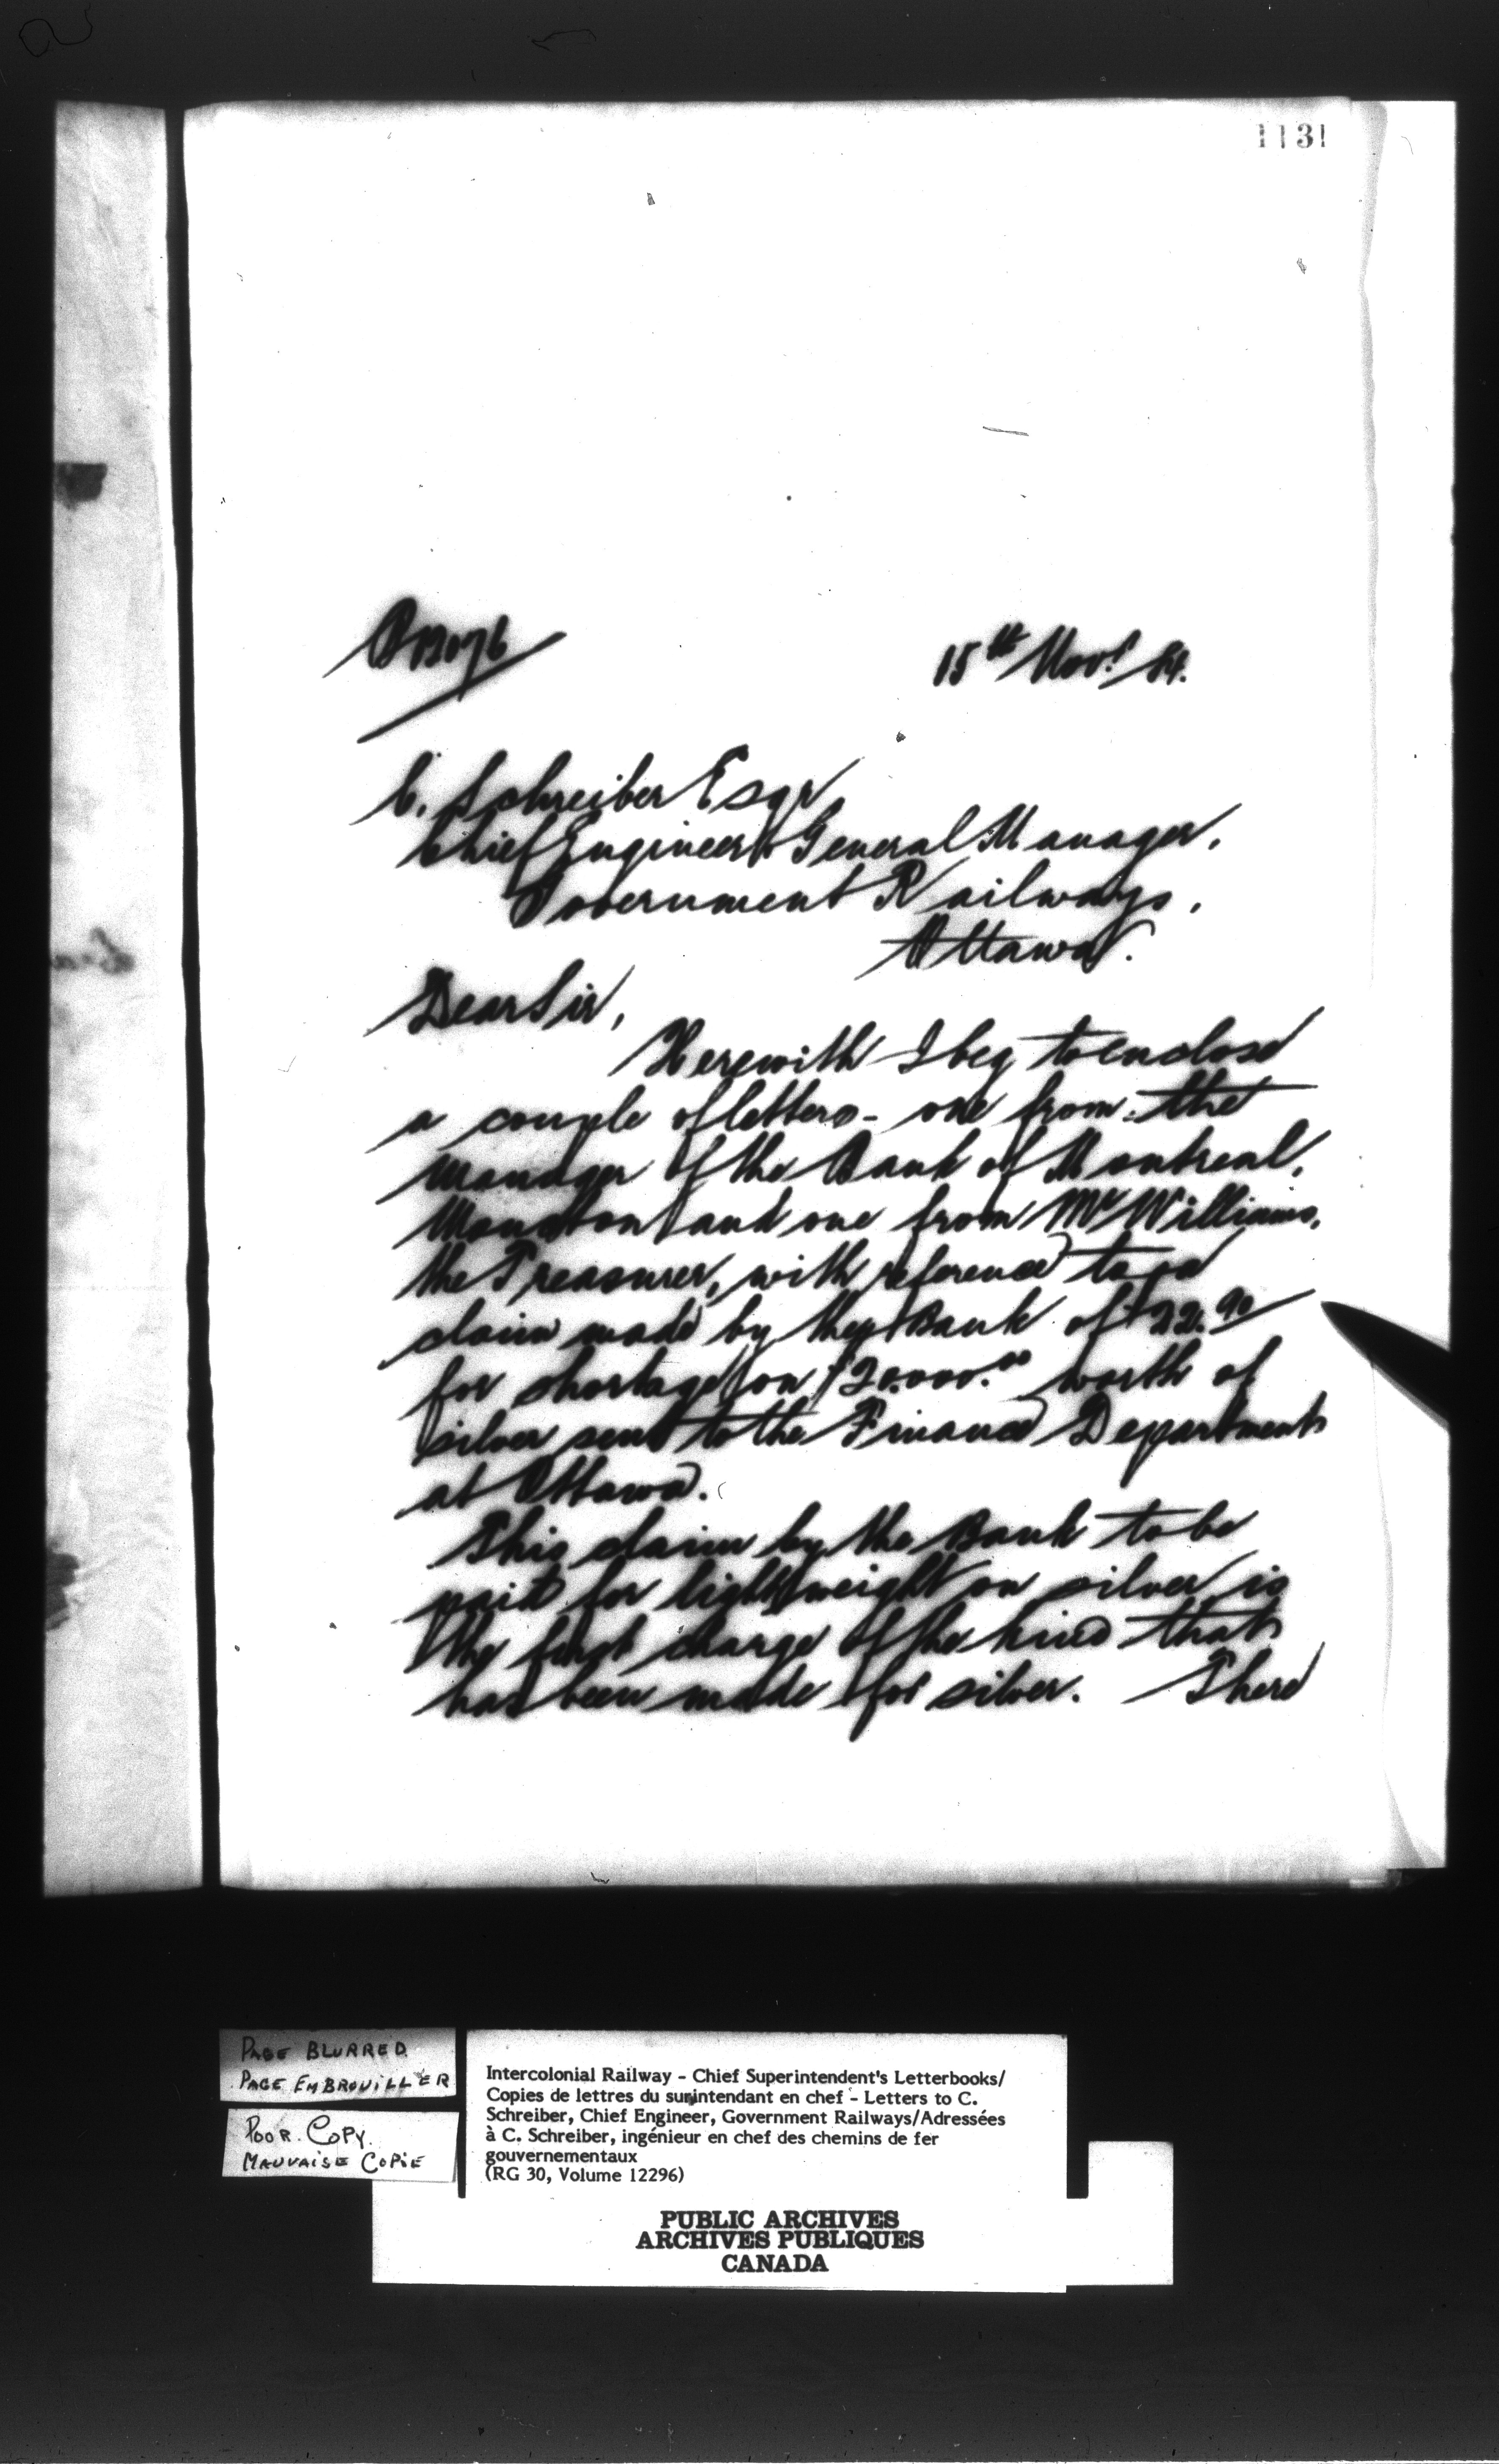 1131
15th Nov! 84.
C. Schreiber Esqr
Chief Engineer & General Manager,
Government Railways,
Ottawa.
Dear Sir,
Herewith I beg to enclose
a couple of letters - one from the
Manager of the Bank of Montreal,
Moncton and one from Mr Williams,
the Treasurer, with reference to a
claim made by the Bank of $22.90
for shortage on $20.000.00 worth of
silver sent to the Finance Department
at Ottawa.
This claim by the Bank to be
paid for light weight on silver is
the first charge of the kind that
has been made for silver. There
PAGE BLURRED
PAGE EMBROUILLER
POOR COPY.
MAUVAISE COPIE
Intercolonial Railway - Chief Superintendent's Letterbooks/
Copies de lettres du surintendant en chef - Letters to C.
Schreiber, Chief Engineer, Government Railways/Adressées
à C. Schreiber, ingénieur en chef des chemins de fer
gouvernementaux
(RG 30, Volume 12296)
PUBLIC ARCHIVES
ARCHIVES PUBLIQUES
CANADA